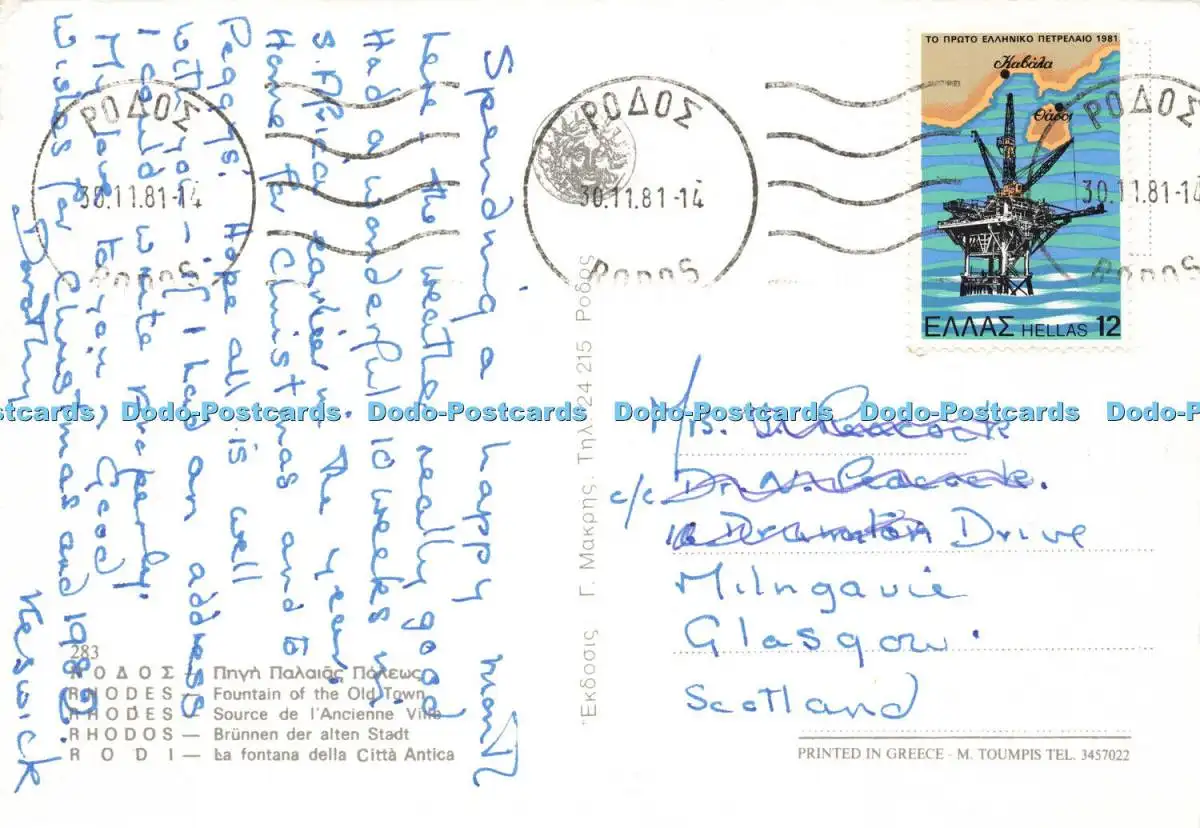 Spending a happy month
here - the weather really good
Had a wonderful 10 weeks in
S. Africa earlier in the year.
Home for Christmas and to
Peggy's. Hope all is well
with you - if I had an address
I could write
My love to you &
wishes for Christmas and 1982.
Dorothy Keswick
ΡΟΔΟΣ
30.11.81-14
RODOS
ΡΟΔΟΣ
30.11.81-14
RODOS
ΡΟΔΟΣ
30.11.81-14
RODOS
ΤΟ ΠΡΩΤΟ ΕΛΛΗΝΙΚΟ ΠΕΤΡΕΛΑΙΟ 1981
Καβάλα
Θάσος
ΕΛΛΑΣ HELLAS 12
Mrs. Peacock
c/o Dr. N. Peacock.
Drive
Milngavie
Glasgow.
Scotland
Έκδοσις Γ. Μακρης. Τηλ. 24 215 Ροδος
283
ΡΟΔΟΣ — Πηγή Παλαιᾶς Πόλεως
RHODES — Fountain of the Old Town
RHODES — Source de l'Ancienne Ville
RHODOS — Brünnen der alten Stadt
RODI — La fontana della Città Antica
PRINTED IN GREECE - M. TOUMPIS TEL. 3457022
Postcards Dodo-Postcards Dodo-Postcards Dodo-Postcards Dodo-Postcards Dodo-Post